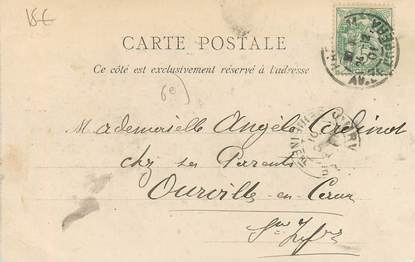 15€
CARTE POSTALE
Ce côté est exclusivement réservé à l'adresse
Mademoiselle Angele
chez ses Parents
Ourville-en-Caux
Sne Infre